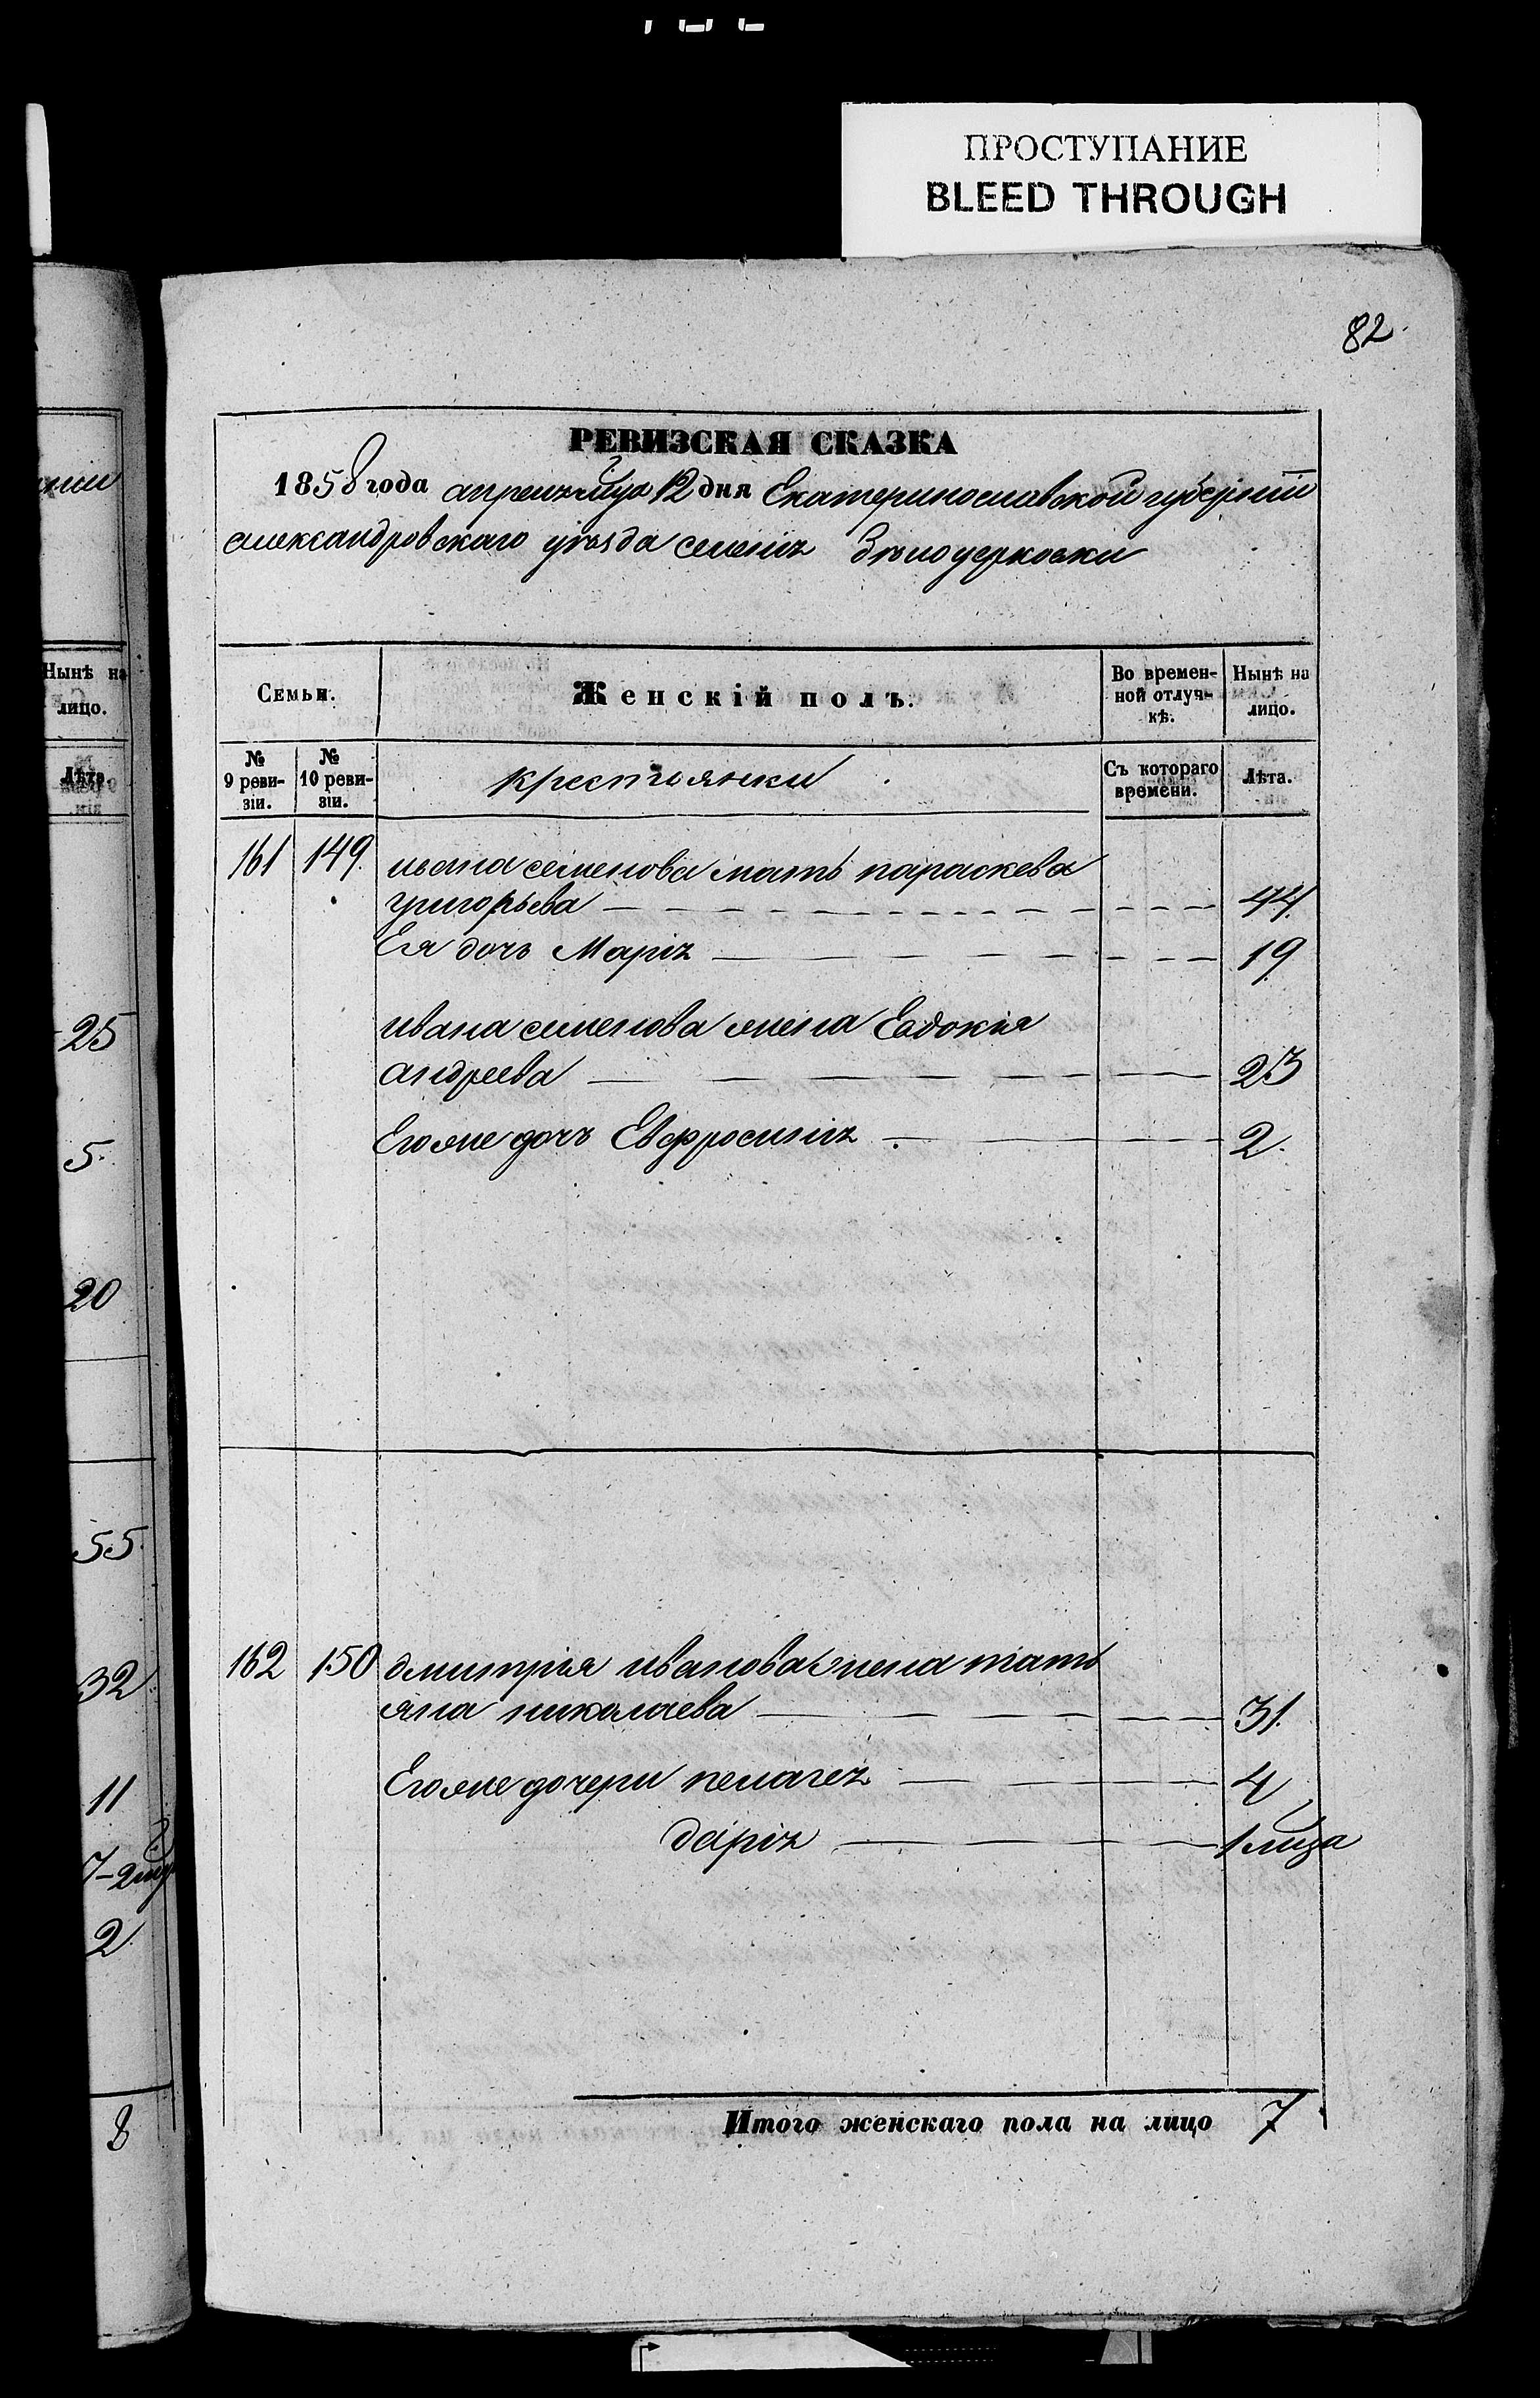 ПРОСТУПАНИЕ
BLEED THROUGH
82
РЕВИЗСКАЯ СКАЗКА
1858 года апреля мца 12 дня Екатеринославской губерніи
александровскаго уѣзда селенія Бѣлоцерковки
Нынѣ на
лицо.
Лѣта.
25
5
20
55
32
11
2
8
Семьи.
Женскій полъ.
Во времен-
ной отлуч-
кѣ.
Нынѣ на
лицо.
№
9 реви-
зіи.
№
10 реви-
зіи.
крестьянки
Съ котораго
времени.
Лѣта.
161 149. ивана семенова мать параскева
григорьева 44
Ея дочь Марія 19
ивана семенова жена Евдокия
андреева 23
Егоже дочь Евфросинія 2
162 150 дмитрія иванова жена тать
яна николаева 31
Егоже дочери пелагея 4
дарія 1 мца
Итого женскаго пола на лицо 7